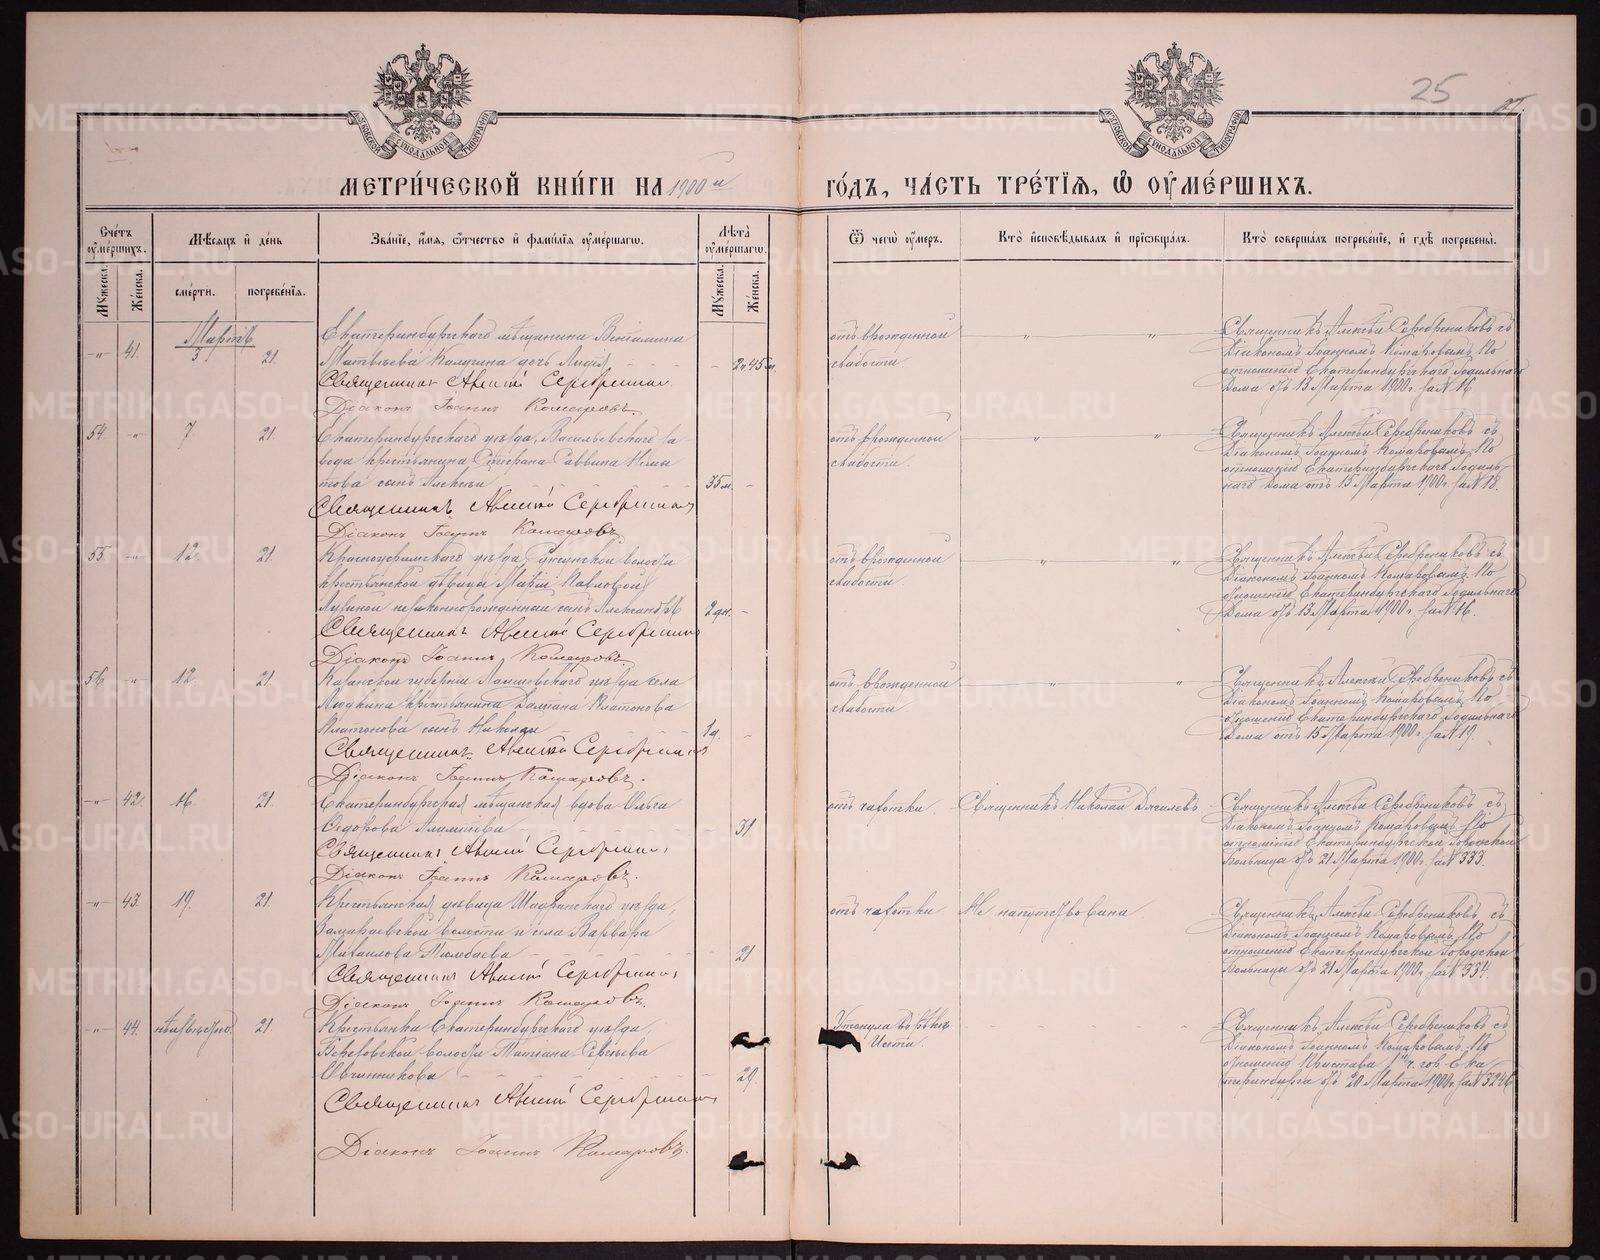 25
МЕТРИ́ЧЕСКОЙ КНИ́ГИ НА 1900 й
ГО́ДЪ, ЧА́СТЬ ТРЕ́ТІѦ, Ѿ ОУМЕ́РШИХЪ.
Сче́тъ оуме́ршихъ.
Мѣсяцъ и де́нь
Зва́нїе, и́мя, ѻ́тчество и фами́лїя оуме́ршагѡ.
Лѣта̀ оуме́ршагѡ.
Ѿ чегѡ̀ оу́меръ.
Кто̀ исповѣ́дывалъ и прїѡбща́лъ.
Кто̀ соверша́лъ погребе́нїе, и гдѣ̀ погребены̀.
Мꙋжеска.
Же́нска.
сме́рти.
погребе́нїя.
Мꙋжеска.
Же́нска.
Мартъ
-"- 41. 3 21
Екатеринбургскаго мѣщанина Веніамина
Матвѣева Калугина дочь Лидія
Священникъ Алексій Серебренников
Діаконъ Іоаннъ Комаровъ.
отъ врожденной
слабости
Священникъ Алексѣй Серебрениковъ съ
Діакономъ Іоанномъ Комаровымъ. По
отношенію Екатеринбургскаго Родильнаго
Дома отъ 13 Марта 1900 г. за № 16.
54 -"- 7 21.
Екатеринбургскаго уѣзда, Васильевскаго за
вода крестьянина Саввина
сынъ Алексѣй 35 м. -
Священникъ Алексій Серебренников
Діаконъ Іоаннъ Комаровъ
отъ врожденной
слабости.
Священникъ Алексѣй Серебрениковъ съ
Діакономъ Іоанномъ Комаровымъ. По
отношенію Екатеринбургскаго Родиль-
наго Дома отъ 15 Марта 1900 г. за № 18.
55 -"- 12. 21.
Красноуфимскаго уѣзда, волости
крестьянской дѣвицы Маріи Павловой
незаконнорожденный сынъ Александръ 2 дн. -
Священникъ Алексій Серебренников
Діаконъ Іоаннъ Комаровъ.
отъ врожденной
слабости.
Священникъ Алексѣй Серебрениковъ съ
Діакономъ Іоанномъ Комаровымъ. По
отношенію Екатеринбургскаго Родильнаго
Дома отъ 13 Марта 1900 г. за № 16.
56 " 12. 21
Казанской губерніи Лаишевскаго уѣзда села
крестьянина Платонова
Платонова сынъ Николай 1 д. -
Священникъ Алексій Серебренников
Діаконъ Іоаннъ Комаровъ.
отъ врожденной
слабости
Священникъ Алексѣй Серебрениковъ съ
Діакономъ Іоанномъ Комаровымъ. По
отношенію Екатеринбургскаго Родильнаго
Дома отъ 15 Марта 1900 г. за № 19.
-"- 42. 16. 21.
Екатеринбургская мѣщанская вдова Ольга
Ѳедорова 31
Священникъ Алексій Серебренников
Діаконъ Іоаннъ Комаровъ.
отъ чахотки
Священникъ Николай
Священникъ Алексѣй Серебрениковъ съ
Діакономъ Іоанномъ Комаровымъ. По
отношенію Екатеринбургской Городской
больницы отъ 21 Марта 1900 г. за № 333.
-"- 43. 19. 21.
Крестьянская дѣвица Шадринскаго уѣзда,
Замараевской волости и села Варвара
Михайлова 21
Священникъ Алексій Серебренников
Діаконъ Іоаннъ Комаровъ.
отъ чахотки
Не напутствована.
Священникъ Алексѣй Серебрениковъ съ
Діакономъ Іоанномъ Комаровымъ. По
отношенію Екатеринбургской Городской
больницы отъ 21 Марта 1900 г. за № 334.
-"- 44. неизвѣстно. 21.
Крестьянка Екатеринбургскаго уѣзда,
Березовской волости Татіана Сергѣева
Овчинникова 29
Священникъ Алексій Серебренников
Діаконъ Іоаннъ Комаровъ.
Утонула въ рѣкѣ
Исети.
Священникъ Алексѣй Серебрениковъ съ
Діакономъ Іоанномъ Комаровымъ. По
отношенію Пристава 1й ч. гор. Ека
теринбурга отъ 20 Марта 1900 г. за № 3246
METRIKI.GASO-URAL.RU